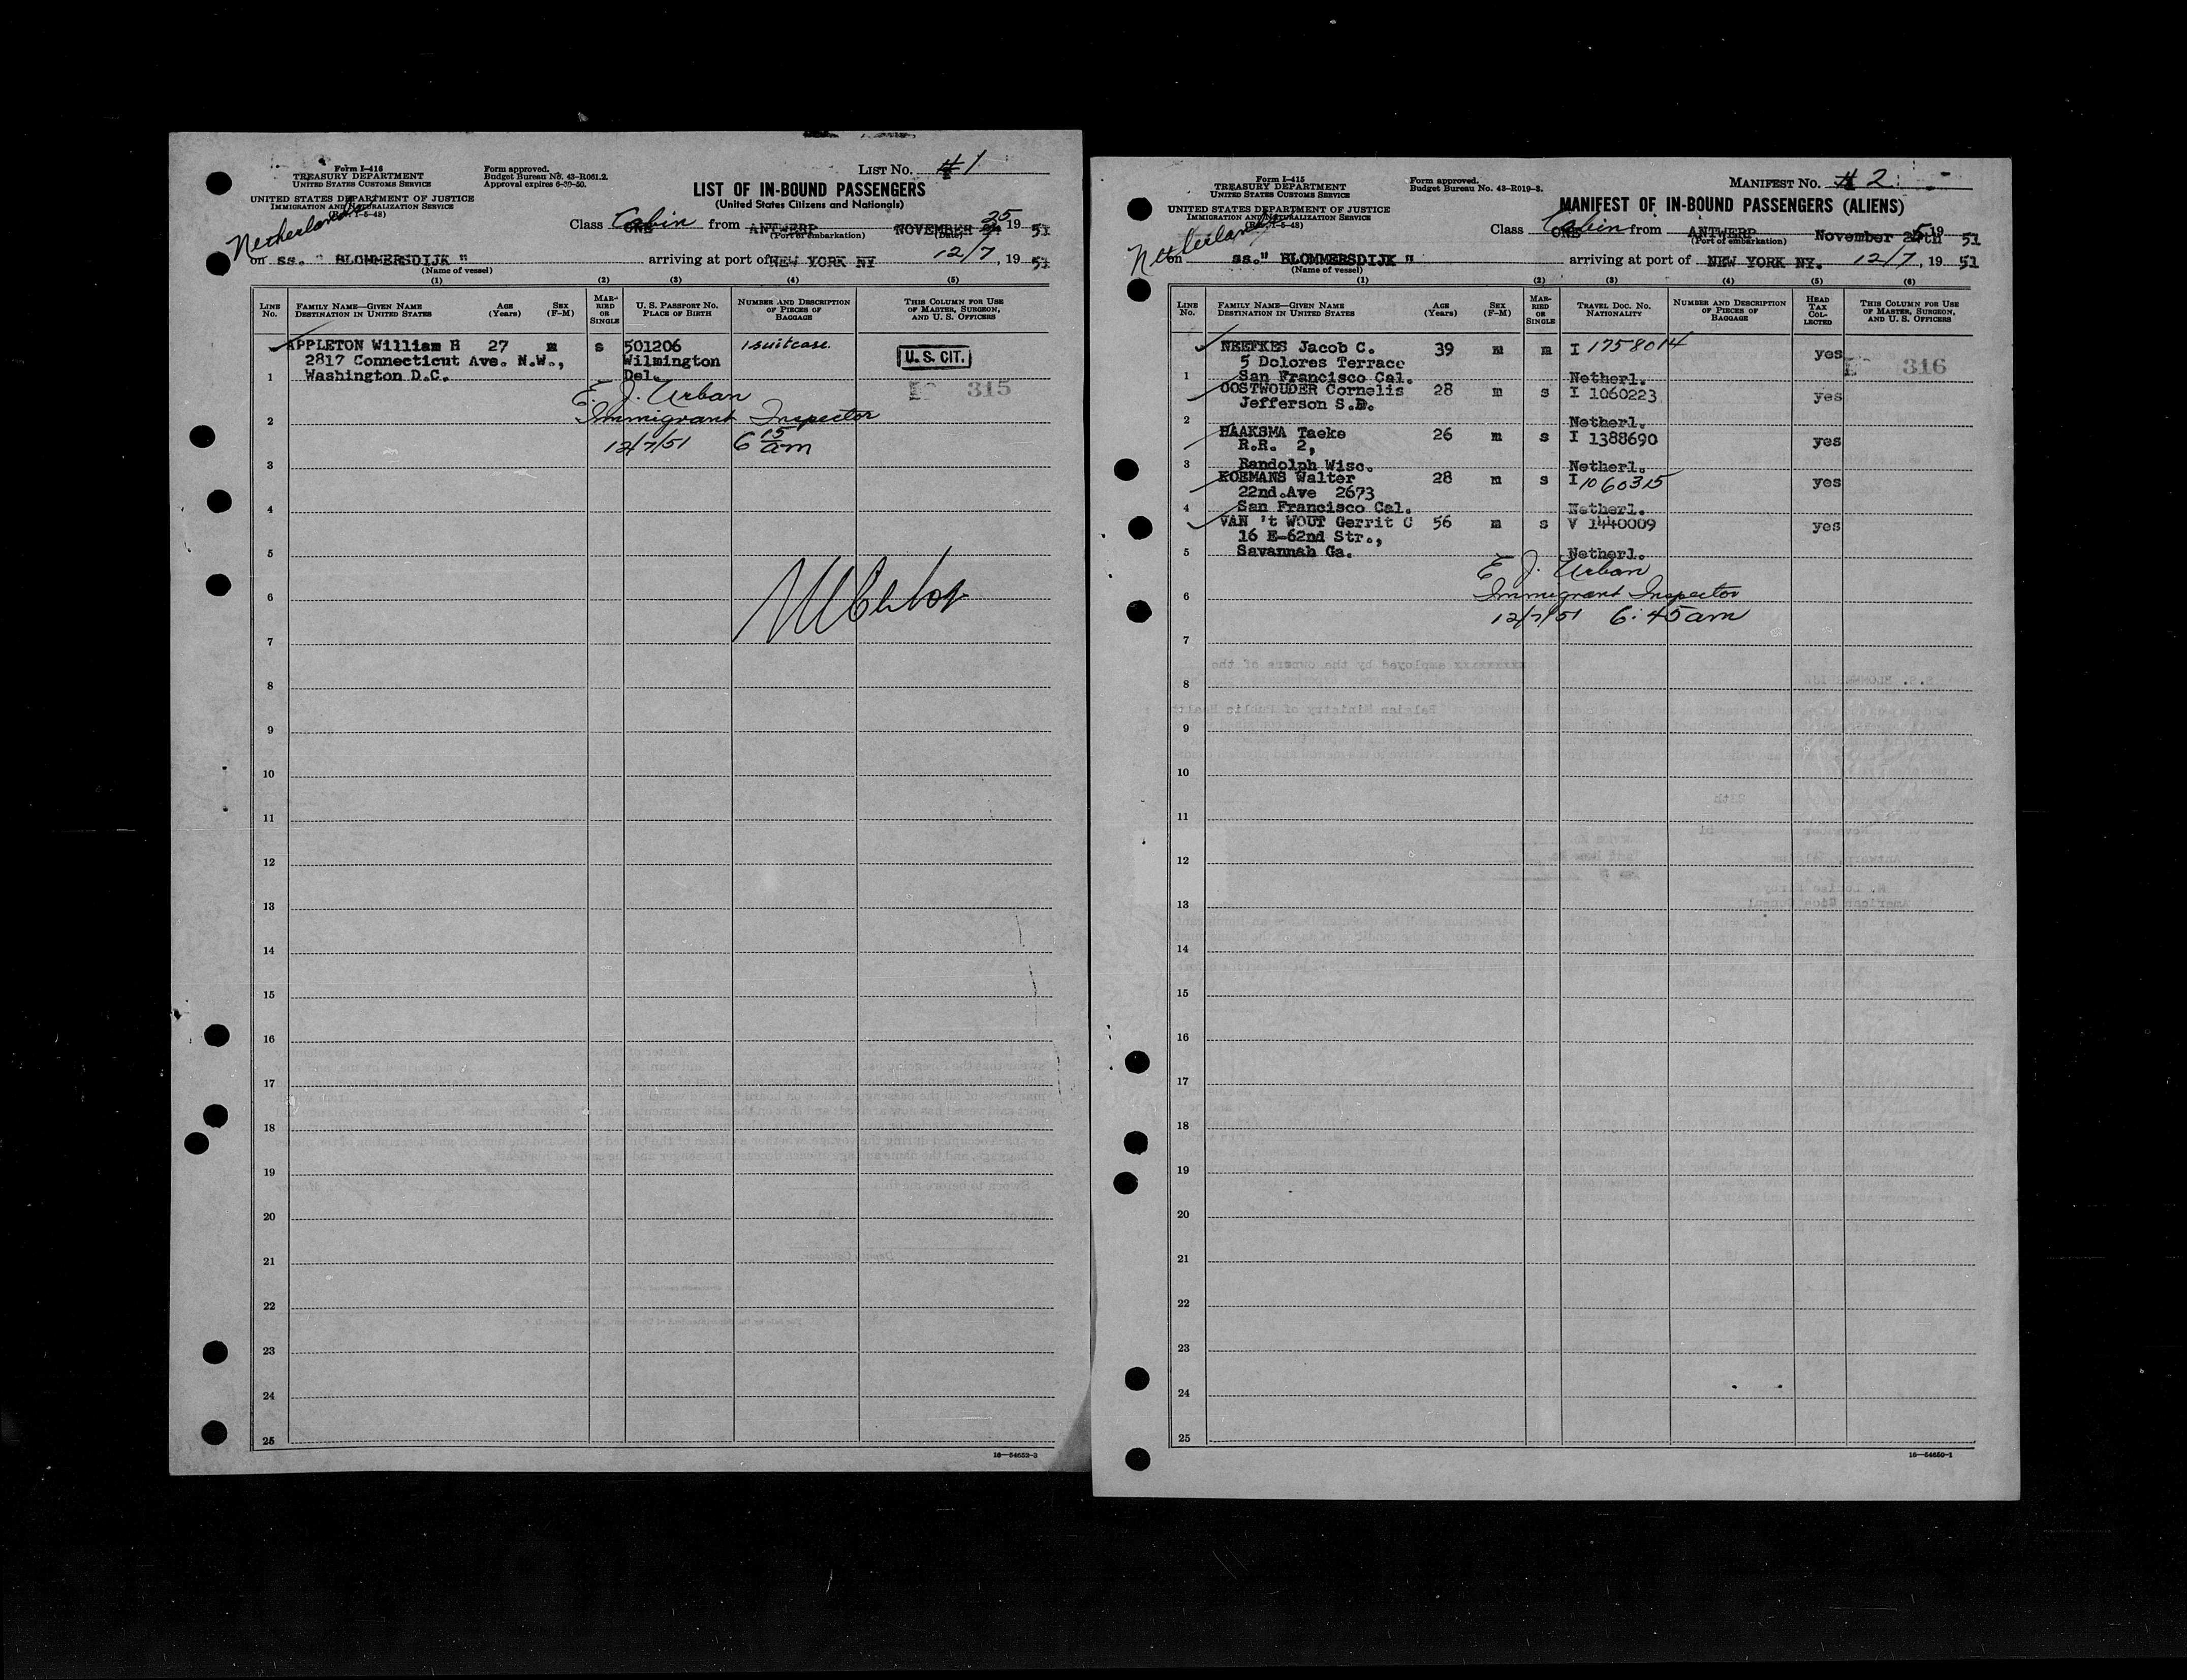 Form I-416
TREASURY DEPARTMENT
UNITED STATES CUSTOMS SERVICE
UNITED STATES DEPARTMENT OF JUSTICE
IMMIGRATION AND NATURALIZATION SERVICE
Form approved.
Budget Bureau No. 43-R061.2.
Approval expires 6-30-50.
LIST No. #1
LIST OF IN-BOUND PASSENGERS
(United States Citizens and Nationals)
Netherland
Class Cabin from ANTWERP NOVEMBER 25 19 51
(Port of embarkation) (Date)
on ss. " BLOMMERSDIJK " arriving at port of NEW YORK NY 12/7, 19 51
(Name of vessel)
(1) (2) (3) (4) (5)
LINE No. FAMILY NAME—GIVEN NAME DESTINATION IN UNITED STATES AGE (Years) SEX (F-M) MARRIED OR SINGLE U. S. PASSPORT NO. PLACE OF BIRTH NUMBER AND DESCRIPTION OF PIECES OF BAGGAGE THIS COLUMN FOR USE OF MASTER, SURGEON, AND U. S. OFFICERS
APPLETON William H 27 m s 501206 1 suitcase U. S. CIT.
2817 Connecticut Ave. N.W., Wilmington
1 Washington D.C. Del.
315
E. J. Urban
2 Immigrant Inspector
12/7/51 6 15 am
3
4
5
6
7
8
9
10
11
12
13
14
15
16
17
18
19
20
21
22
23
24
25
16—54653-3
Form I-415
TREASURY DEPARTMENT
UNITED STATES CUSTOMS SERVICE
UNITED STATES DEPARTMENT OF JUSTICE
IMMIGRATION AND NATURALIZATION SERVICE
Form approved.
Budget Bureau No. 43-R019-3.
MANIFEST No. # 2
MANIFEST OF IN-BOUND PASSENGERS (ALIENS)
Netherland
Class Cabin from ANTWERP November 25th 19 51
(Port of embarkation)
on ss." BLOMMERSDIJK " arriving at port of NEW YORK NY. 12/7, 19 51
(Name of vessel)
(1) (2) (3) (4) (5) (6)
LINE No. FAMILY NAME—GIVEN NAME DESTINATION IN UNITED STATES AGE (Years) SEX (F-M) MARRIED OR SINGLE TRAVEL DOC. NO. NATIONALITY NUMBER AND DESCRIPTION OF PIECES OF BAGGAGE HEAD TAX COLLECTED THIS COLUMN FOR USE OF MASTER, SURGEON, AND U. S. OFFICERS
NEEFKES Jacob C. 39 m m I 1758014 yes
5 Dolores Terrace 316
1 San Francisco Cal. Netherl.
OOSTWOUDER Cornelis 28 m s I 1060223 yes
Jefferson S.D.
2 Netherl.
HAAKSMA Taeke 26 m s I 1388690 yes
R.R. 2,
3 Randolph Wisc. Netherl.
KOEMANS Walter 28 m s I 1060315 yes
22nd.Ave 2673
4 San Francisco Cal. Netherl.
VAN 't WOUT Gerrit C 56 m s V 1440009 yes
16 E-62nd Str.,
5 Savannah Ga. Netherl.
E J. Urban
6 Immigrant Inspector
12/7/51 6:45am
7
8
9
10
11
12
13
14
15
16
17
18
19
20
21
22
23
24
25
16—54650-1